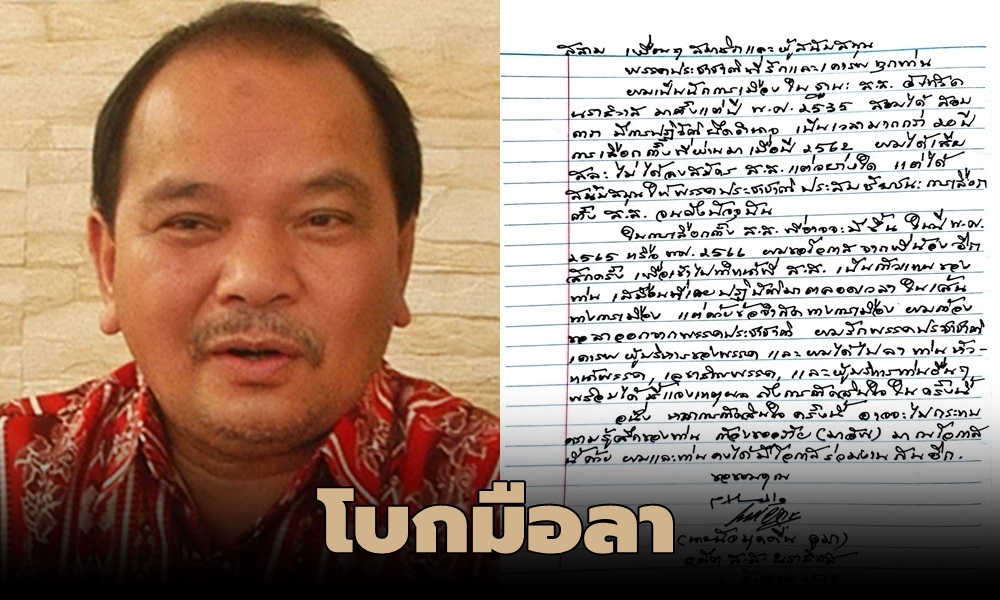 สลาม เพื่อนๆ สมาชิกและผู้สนับสนุน
พรรคประชาชาติที่รักและเคารพทุกท่าน
ผมเป็นนักการเมืองในฐานะ ส.ส. จังหวัด
นราธิวาส มาตั้งแต่ปี พ.ศ. 2535 สอบได้ สอบ
ตก มีการปฏิวัติยึดอำนาจ เป็นเวลามากกว่า 20 ปี
การเลือกตั้งที่ผ่านมาเมื่อปี 2562 ผมได้เสีย
สละ ไม่ได้ลงสมัคร ส.ส. แต่อย่างใด แต่ได้
สนับสนุนให้พรรคประชาชาติ ประสบชัยชนะ การเลือก
ตั้ง ส.ส. จนถึงปัจจุบัน
ในการเลือกตั้ง ส.ส. ที่อาจจะมีขึ้น ในปี พ.ศ.
2565 หรือ พ.ศ. 2566 ผมขอโอกาสจากพี่น้อง อีก
สักครั้ง เพื่อเข้าไปทำหน้าที่ ส.ส. เป็นตัวแทนของ
ท่าน เสมือนที่เคยปฏิบัติมาตลอดเวลา ในเส้น
ทางการเมือง แต่ด้วยข้อจำกัดทางการเมือง ผมต้อง
ขอลาออกจากพรรคประชาชาติ ผมรักพรรคประชาชาติ
เคารพผู้บริหารของพรรค และผมได้ไปลาท่านหัว-
หน้าพรรค, เลขาธิการพรรค, และผู้บริหารท่านอื่นๆ
พร้อมได้ชี้แจงเหตุผล ถึงการตัดสินใจในครั้งนี้
อนึ่ง หากการตัดสินใจครั้งนี้ อาจจะไปกระทบ
ความรู้สึกของท่าน ต้องขออภัย (มาอัฟ) มา ณ โอกาส
นี้ด้วย ผมและท่านคงได้มีโอกาสร่วมงานกันอีก.
ขอขอบคุณ
อดีต ส.ส. นราธิวาส
โบกมือลา